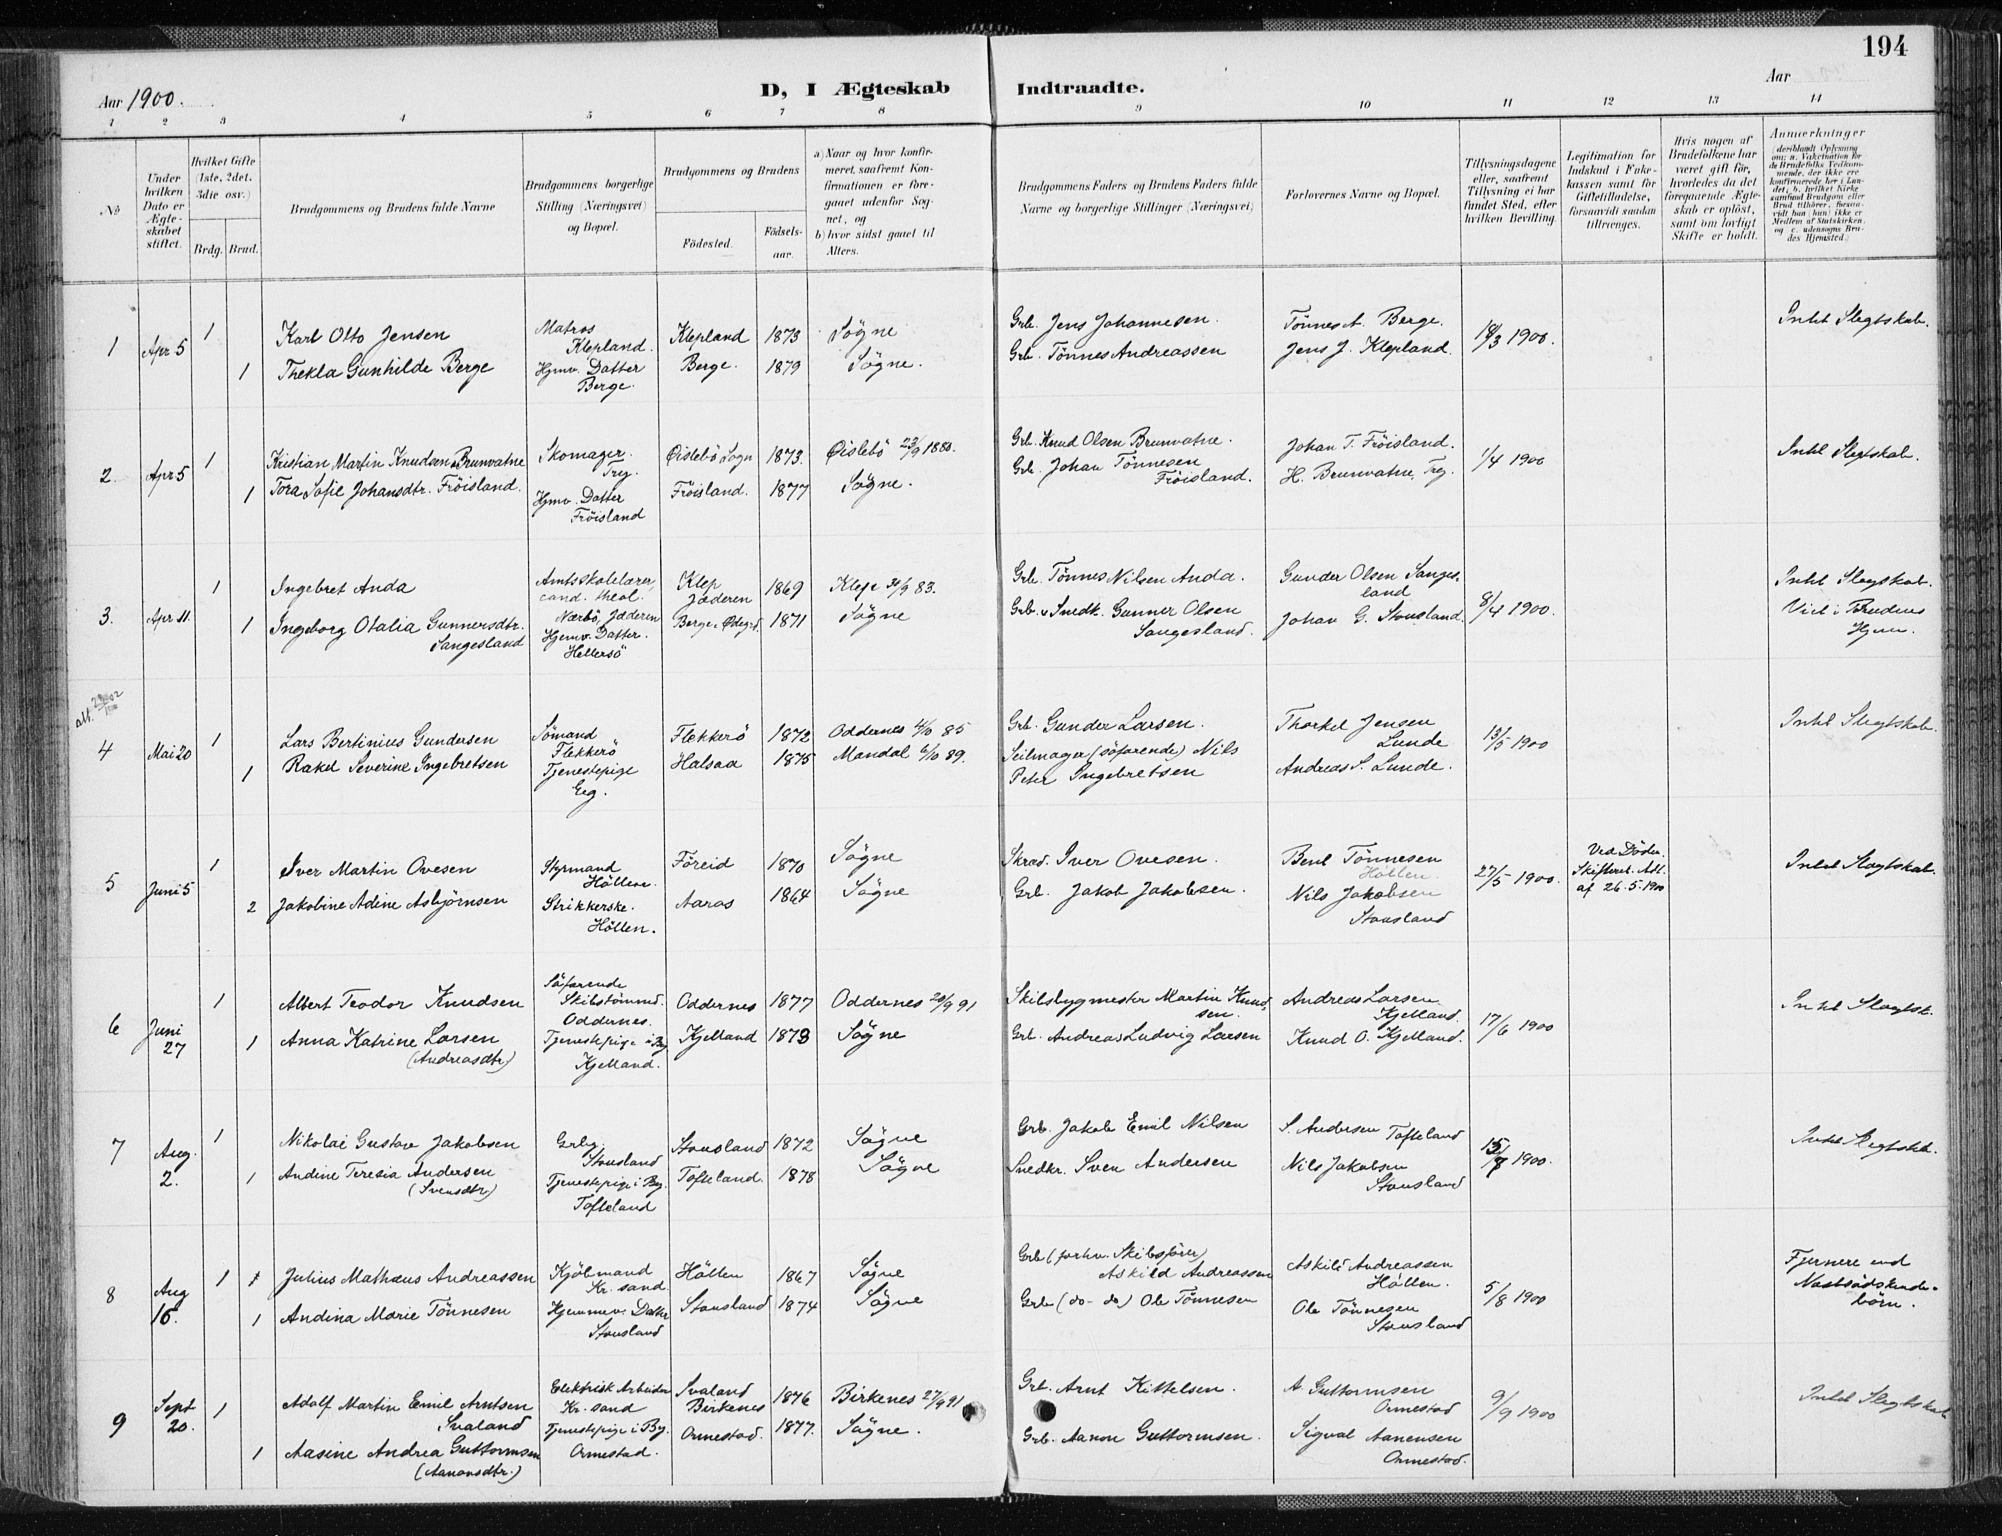 194
Aar 1900.
D, I Ægteskab Indtraadte.
Aar
1 2 3 4 5 6 7 8 9 10 11 12 13 14
No
Under hvilken Dato er Ægteskabet stiftet.
Hvilket Gifte (1ste, 2det, 3die osv.)
Brdg. Brud.
Brudgommens og Brudens fulde Navne
Brudgommens borgerlige Stilling (Næringsvei) og Bopæl.
Brudgommens og Brudens
Födested.
Födsels-aar.
a) Naar og hvor konfirmeret, saafremt Konfirmationen er foregaaet udenfor Sognet, og
b) hvor sidst gaaet til Alters.
Brudgommens Faders og Brudens Faders fulde Navne og borgerlige Stillinger (Næringsvei)
Forlovernes Navne og Bopæl.
Tillysningsdagene eller, saafremt Tillysning ei har fundet Sted, efter hvilken Bevilling.
Legitimation for Indskud i Enkekassen samt for Giftetilladelse, forsaavidt saadan tiltrænges.
Hvis nogen af Brudefolkene har været gift för, hvorledes da det foregaaende Ægteskab er oplöst, samt om lovligt Skifte er holdt.
Anmærkninger
(deriblandt Oplysning om: a. Vakcination for de Brudefolks Vedkommende, der ikke ere konfirmerede her i Landet, b. hvilket Kirkesamfund Brudgom eller Brud tilhörer, forsaavidt han (hun) ikke er Medlem af Statskirken, og c. udensogns Brudes Hjemsted.)
1 Apr 5 1 Karl Olto Jensen Matros Klepland. Klepland 1873 Sögne Grb. Jens Johannesen. Tönnes A. Berge. 18/3 1900. Intet Slegtskab.
1 Thekla Gunhilde Berge Hjmv. Datter Berge. Berge. 1879 Sögne. Grb. Tönnes Andreassen Jens J. Klepland.
2 Apr 5 1 Kristian Martin Knudsen Brunvatne Skomager. Try. Öislebö Sogn 1873. Öislebö 23/9 1888. Grb. Knud Olsen Brunvatne. Johan T. Fröisland. 1/4 1900 Intet Slegtskab.
1 Tora Sofie Johansdtr. Fröisland. Hjmv. Datter Fröisland Fröisland. 1877 Sögne. Grb. Johan Tönnesen Fröisland. H. Brunvatne, Try.
3. Apr 11. 1 Ingebret Anda Amtsskolelærer cand. theol. Nærbö, Jæderen Klep Jæderen 1869 Klep 30/9 83. Grb. Tönnes Nilsen Anda. Gunder Olsen Sangesland 8/4 1900. Intet Slegtskab. Viet i Brudens Hjem.
1 Ingeborg Otalia Gunnersdtr. Sangesland Hjemv. Datter. Hellersö Berge, Ødegd. 1871 Sögne Grb. v Snedk. Gunner Olsen Sangesland. Johan G. Stousland.
4 Mai 20 1 Lars Bertinius Gundersen Sömand Flekkerö Flekkerö 1872 Oddernes 4/10 85 Grb. Gunder Larsen. Thorkel Jensen Lunde 13/5 1900 Intet Slegtskab.
1 Rakel Severine Ingebretsen Tjenestepige Eeg. Halsaa 1875 Mandal 6/10 89. Seilmager (söfarende) Nils Peter Ingebretsen Andreas S. Lunde.
5 Juni 5 1 Iver Martin Ovesen Styrmand Höllen. Föreid 1870 Sögne Skræd. Iver Ovesen. Bent Tönnesen Höllen. 27/5 1900. Ved Döden. Skifteret. Att. af 26.5.1900 Intet Slegtskab.
2 Jakobine Adine Asbjörnsen Strikkerske. Höllen. Aaros 1864 Sögne Grb. Jakob Jakobsen. Nils Jakobsen Stousland
6 Juni 27 1 Albert Teodor Knudsen Söfarende Skibstömmd. Oddernes. Oddernes 1877 Oddernes 20/9 91 Skibsbygmester Martin Knudsen. Andreas Larsen Kjelland. 17/6 1900 Intet Slegtsk.
1 Anna Katrine Larsen (Andreasdtr) Tjenestepige i By Kjelland. Kjelland 1873 Sögne Grb. Andreas Ludvig Larsen Knud O. Kjelland.
7 Aug. 2. 1 Nikolai Gustav Jakobsen Grbr. Stousland Stousland 1872 Sögne Grb. Jakob Emil Nilsen S. Andersen Tofteland 15/7 1900. Intet Slegtskb.
1 Andine Teresia Andersen (Svensdtr) Tjenestepige i By. Tofteland Tofteland. 1878 Sögne Snedkr. Sven Andersen Nils Jakobsen Stousland
8 Aug 16. 1 Julius Mathæus Andreassen Kjöbmand Kr.sand Höllen 1867 Sögne Grb (forhv. Skibsförer) Askild Andreassen Askild Andreassen Höllen. 5/8 1900 Fjernere end Næstsödskendebörn.
1 Andina Marie Tönnesen Hjemmev. Datter Stousland Stousland 1874 Sögne Grb (do - do) Ole Tönnesen Ole Tönnesen Stousland
9 Sept 20. 1 Adolf Martin Emil Arntsen Svaland Elektrisk Arbeider Kr.sand Svaland Birkenes 1876 Birkenes 27/9 91 Grb. Arnt Kittelsen. A. Guttormsen Ormestad 9/9 1900 Intet Slegtskab
1 Aasine Andrea Guttormsen (Aanonsdtr.) Tjenestepige i By. Ormestad. Ormestad. 1877. Sögne. Grb. Aanon Guttormsen. Sigval Aanensen Ormestad.